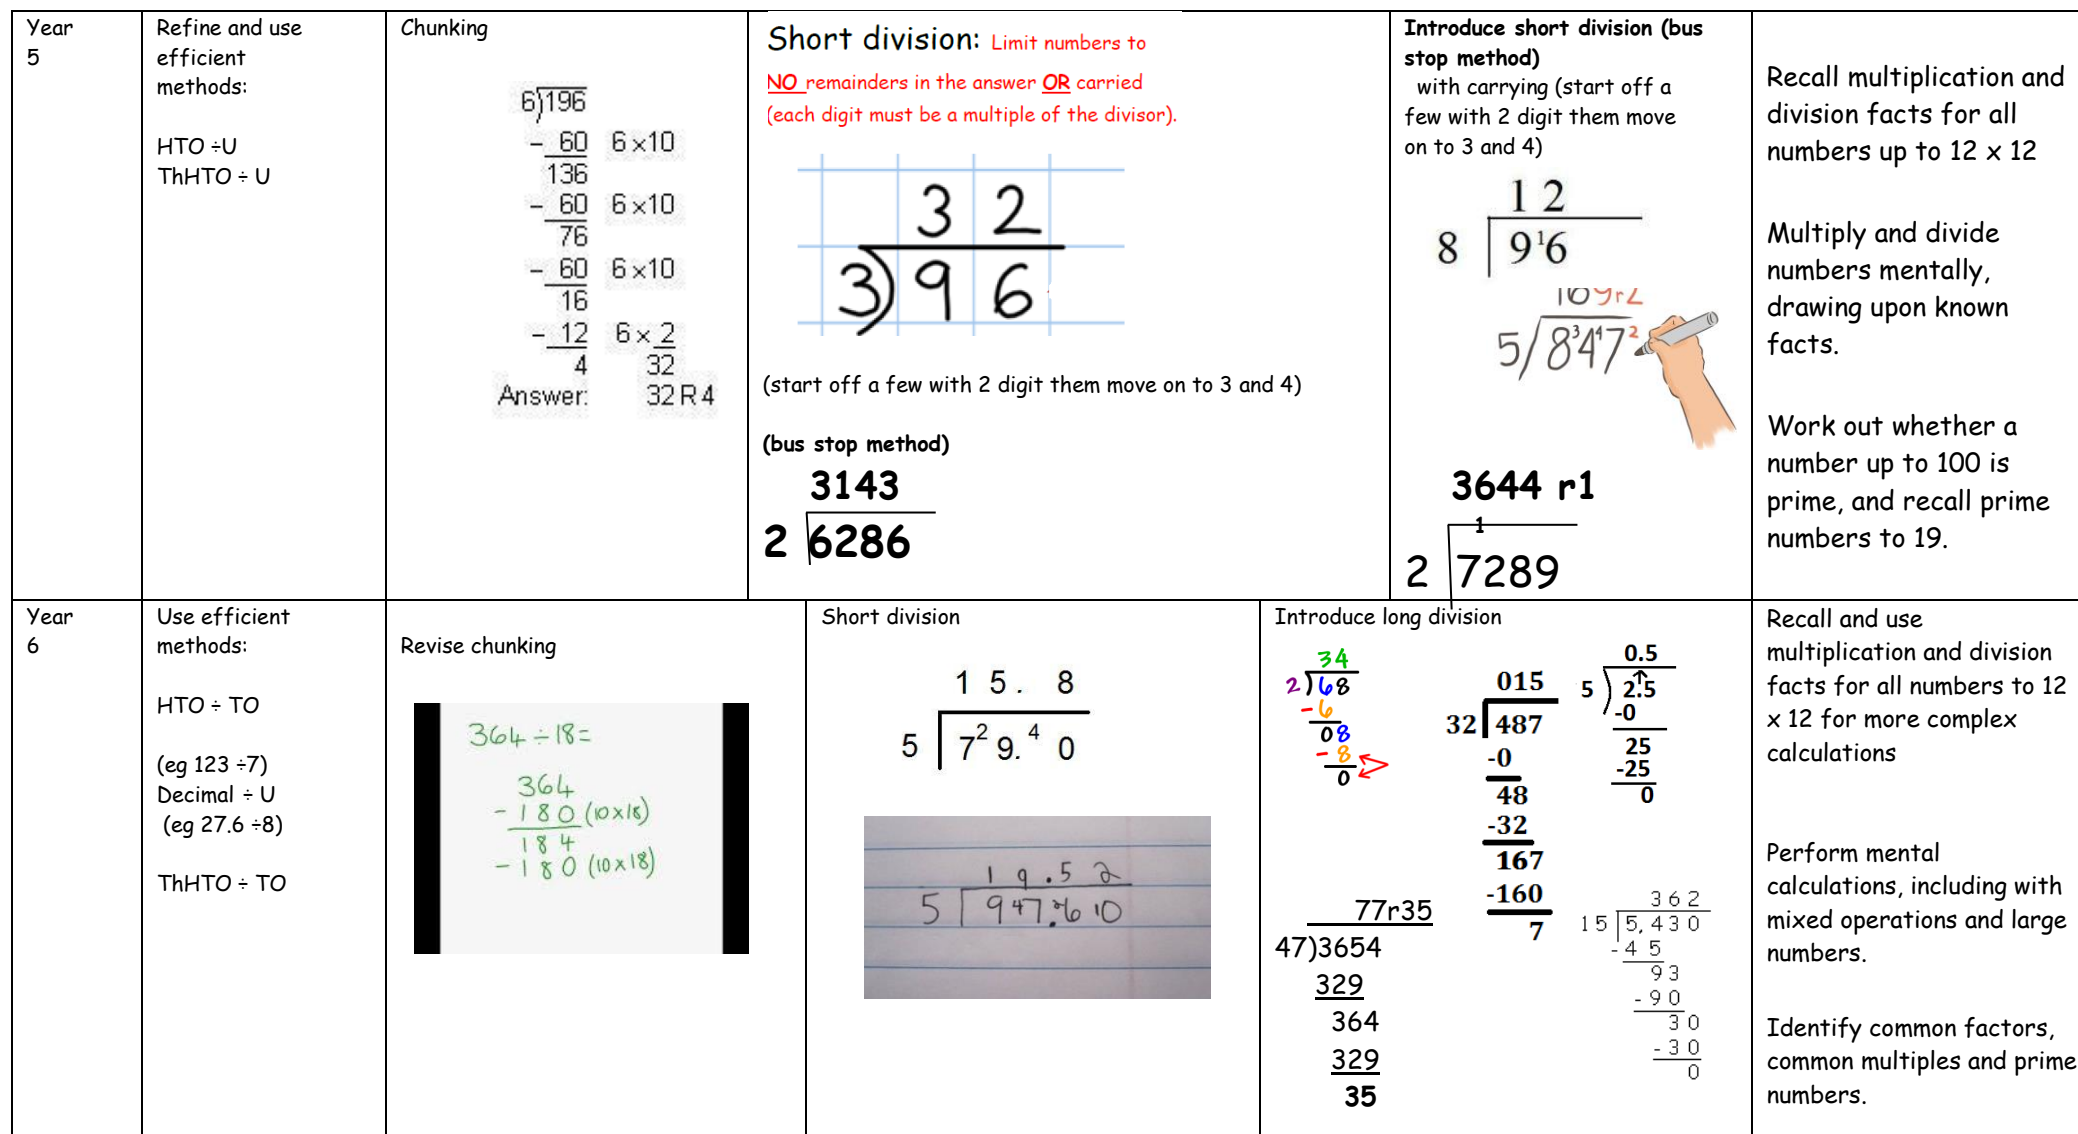 Year
5
Refine and use
efficient
methods:
HTO ÷U
ThHTO ÷ U
Chunking
6)196
- 60 6×10
136
- 60 6×10
76
- 60 6×10
16
- 12 6× 2
4 32
Answer: 32 R 4
Short division: Limit numbers to
NO remainders in the answer OR carried
(each digit must be a multiple of the divisor).
3 2
3)9 6
(start off a few with 2 digit them move on to 3 and 4)
(bus stop method)
3143
2 6286
Introduce short division (bus
stop method)
with carrying (start off a
few with 2 digit them move
on to 3 and 4)
1 2
8 9 1 6
169r2
5/8 3 4 4 7 2
3644 r1
1
2 7289
Recall multiplication and
division facts for all
numbers up to 12 x 12
Multiply and divide
numbers mentally,
drawing upon known
facts.
Work out whether a
number up to 100 is
prime, and recall prime
numbers to 19.
Year
6
Use efficient
methods:
HTO ÷ TO
(eg 123 ÷7)
Decimal ÷ U
(eg 27.6 ÷8)
ThHTO ÷ TO
Revise chunking
364 ÷ 18 =
364
- 180 (10×18)
184
- 180 (10×18)
Short division
1 5 . 8
5 7 2 9. 4 0
1 9 . 5 2
5 9 47.26 10
Introduce long division
34
2)68
- 6
08
- 8
0
015
32 487
-0
48
-32
167
-160
7
0.5
5 ) 2.5
-0
25
-25
0
77r35
47)3654
329
364
329
35
3 6 2
1 5 5, 4 3 0
- 4 5
9 3
- 9 0
3 0
- 3 0
0
Recall and use
multiplication and division
facts for all numbers to 12
x 12 for more complex
calculations
Perform mental
calculations, including with
mixed operations and large
numbers.
Identify common factors,
common multiples and prime
numbers.